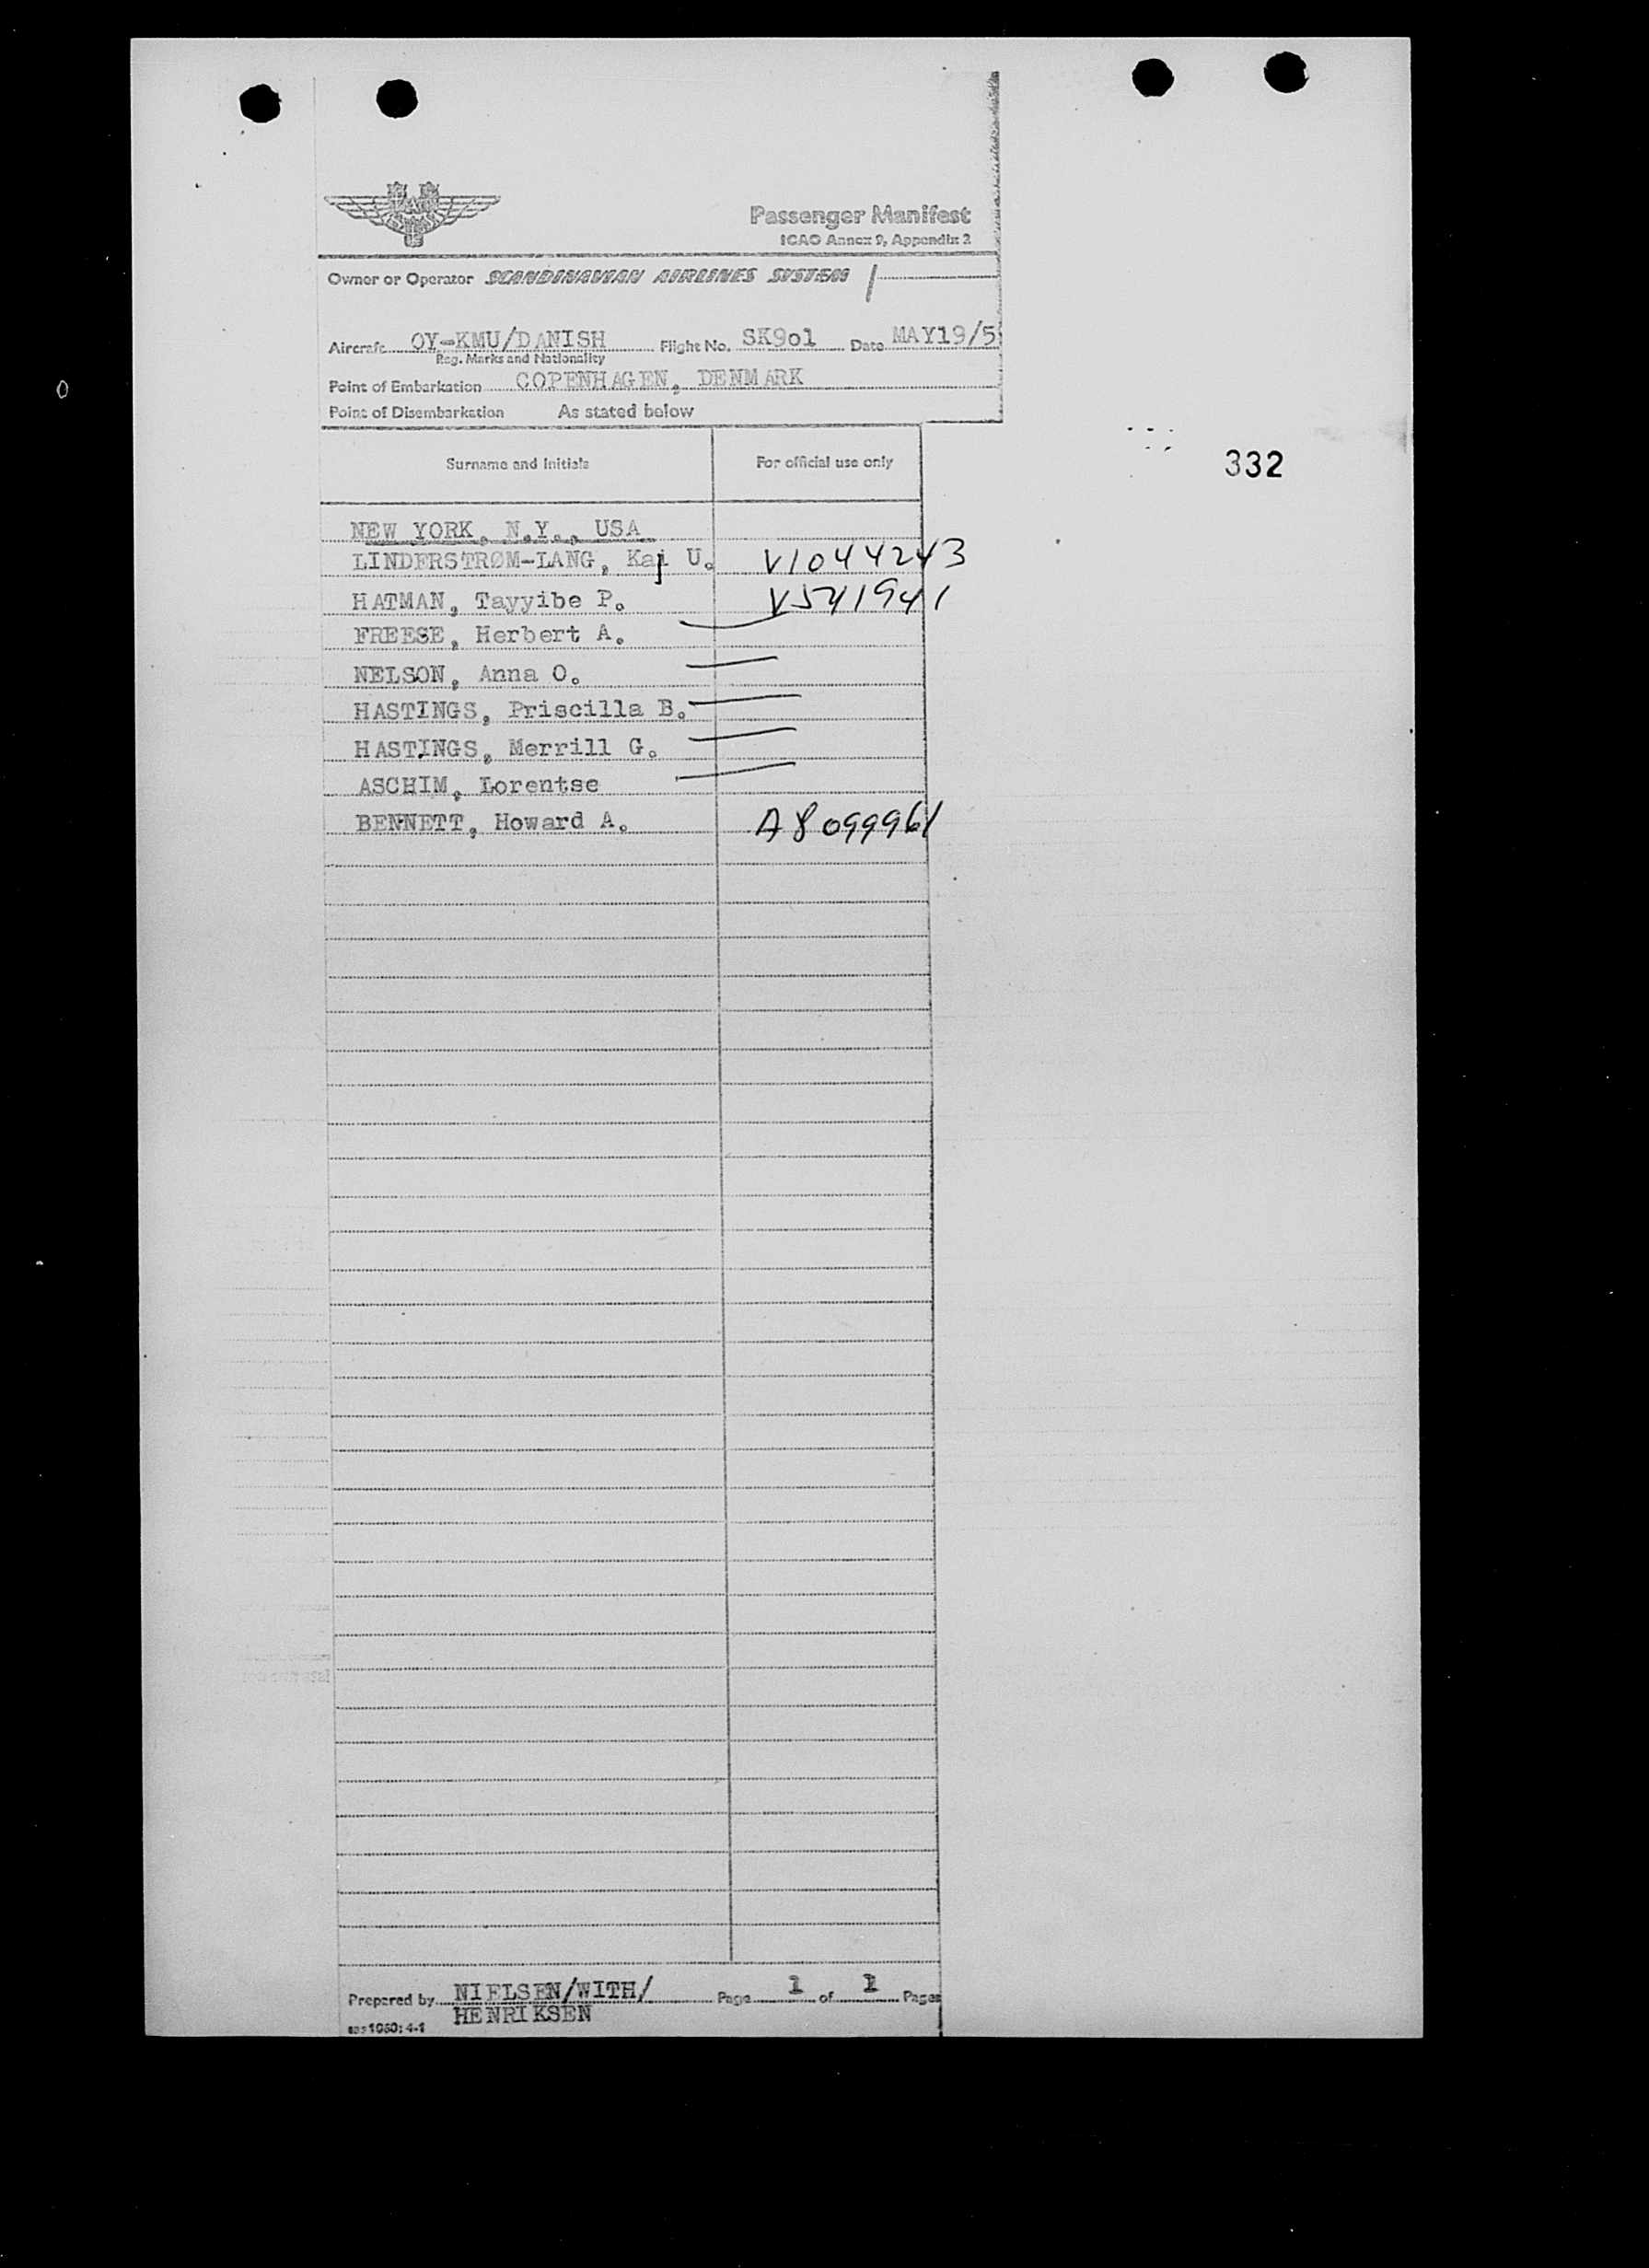 Passenger Manifest
ICAO Annex 9, Appendix 2
Owner or Operator SCANDINAVIAN AIRLINES SYSTEM
Aircraft OY-KMU/DANISH Flight No. SK9o1 Date MAY19/5
Reg. Marks and Nationality
Point of Embarkation COPENHAGEN, DENMARK
Point of Disembarkation As stated below
Surname and Initials For official use only
332
NEW YORK, N.Y., USA
LINDERSTRØM-LANG, Kaj U. V1044243
HATMAN, Tayyibe P. V541941
FREESE, Herbert A.
NELSON, Anna O.
HASTINGS, Priscilla B.
HASTINGS, Merrill G.
ASCHIM, Lorentse
BENNETT, Howard A. A8099961
Prepared by NIELSEN/WITH/ Page 1 of 1 Pages
HENRIKSEN